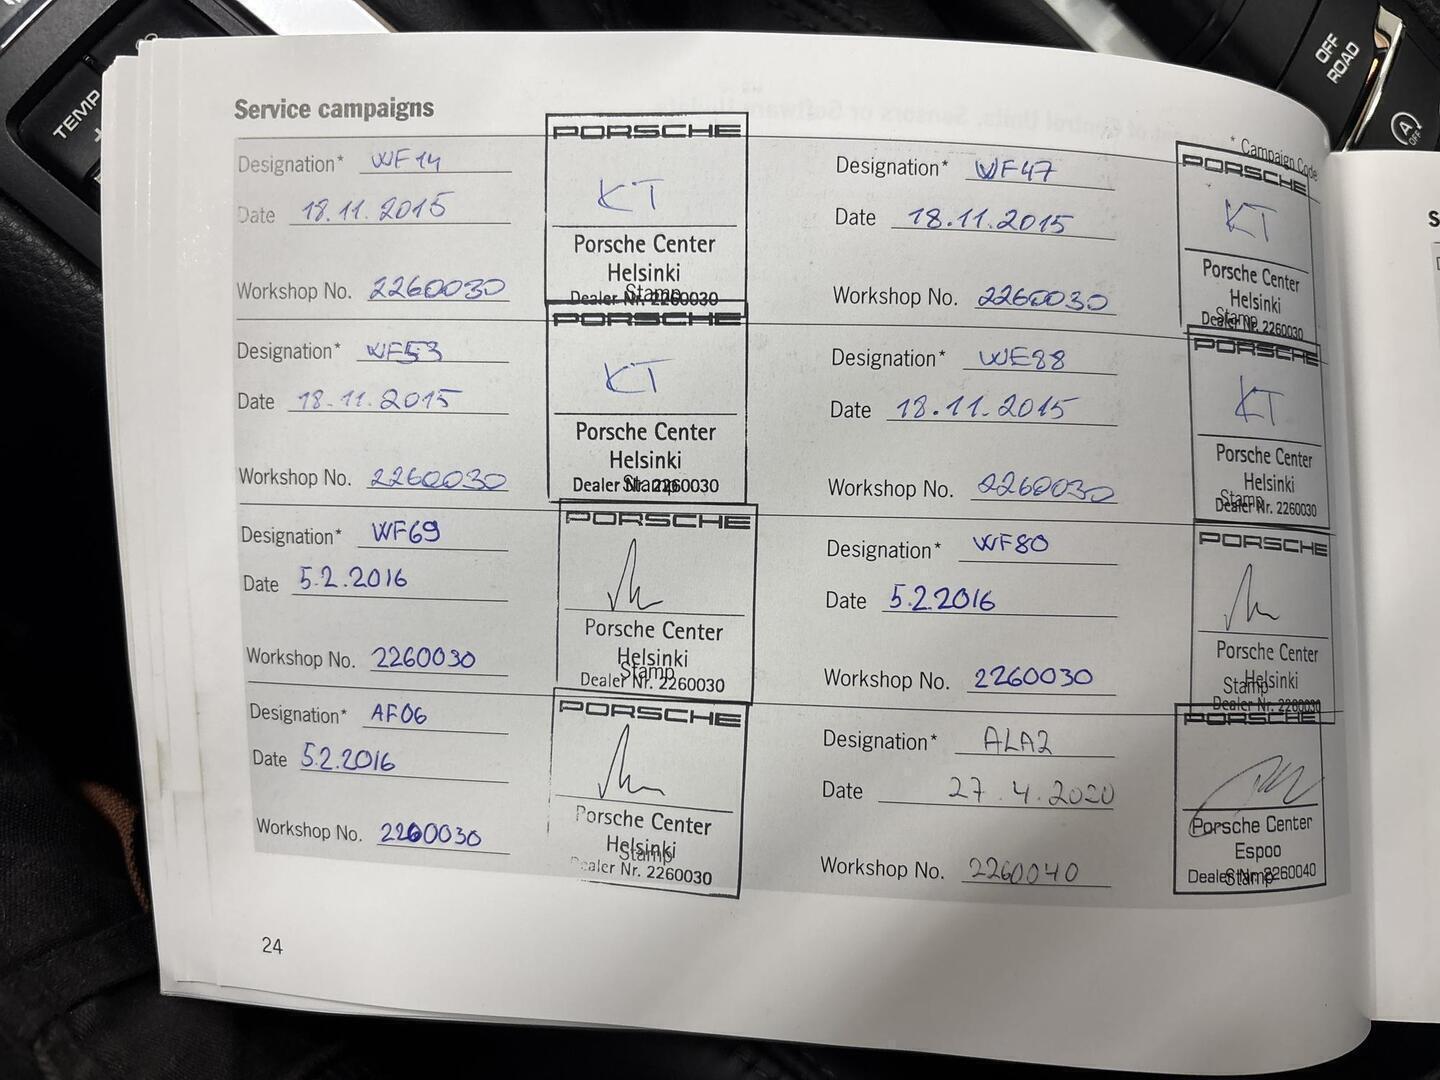 TEMP
OFF
ROAD
A
OFF
Service campaigns
* Campaign Code
Designation* WF14
Date 18.11.2015
Workshop No. 2260030
PORSCHE
KT
Porsche Center
Helsinki
Stamp
Dealer Nr. 2260030
Designation* WF47
Date 18.11.2015
Workshop No. 2260030
PORSCHE
KT
Porsche Center
Helsinki
Stamp
Dealer Nr. 2260030
Designation* WF53
Date 18.11.2015
Workshop No. 2260030
PORSCHE
KT
Porsche Center
Helsinki
Stamp
Dealer Nr. 2260030
Designation* WE88
Date 18.11.2015
Workshop No. 2260030
PORSCHE
KT
Porsche Center
Helsinki
Stamp
Dealer Nr. 2260030
Designation* WF69
Date 5.2.2016
Workshop No. 2260030
PORSCHE
Porsche Center
Helsinki
Stamp
Dealer Nr. 2260030
Designation* WF80
Date 5.2.2016
Workshop No. 2260030
PORSCHE
Porsche Center
Helsinki
Stamp
Dealer Nr. 2260030
Designation* AF06
Date 5.2.2016
Workshop No. 2260030
PORSCHE
Porsche Center
Helsinki
Stamp
Dealer Nr. 2260030
Designation* ALA2
Date 27.4.2020
Workshop No. 2260040
PORSCHE
Porsche Center
Espoo
Stamp
Dealer Nr. 2260040
24